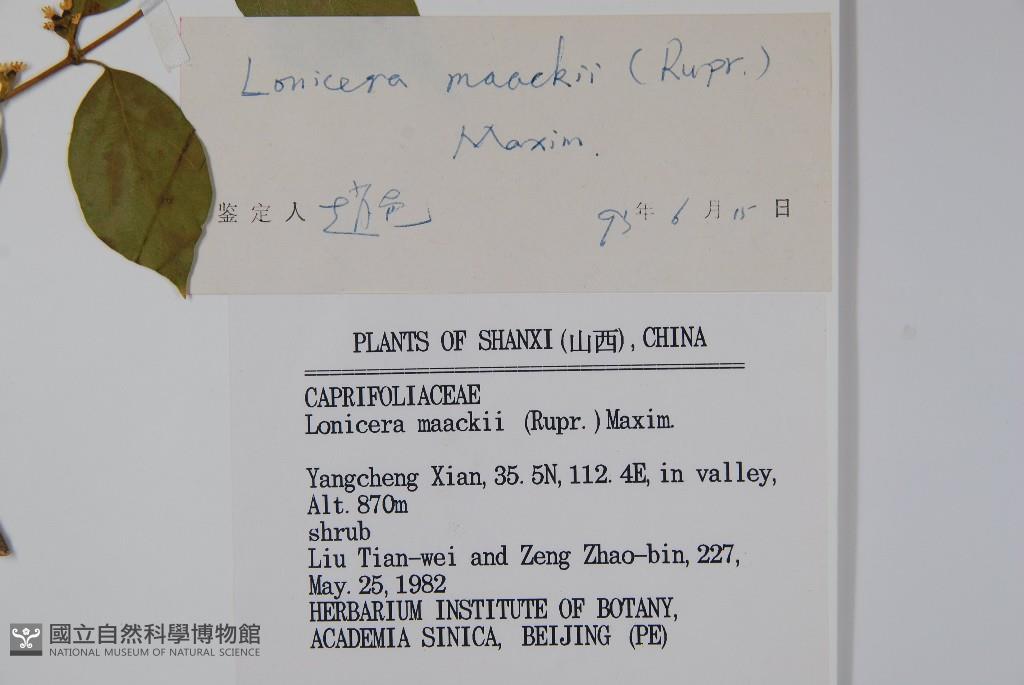 Lonicera maackii (Rupr.)
Maxim.
鉴定人 93年 6月 15日
PLANTS OF SHANXI (山西), CHINA
CAPRIFOLIACEAE
Lonicera maackii (Rupr.) Maxim.
Yangcheng Xian, 35.5N, 112.4E, in valley,
Alt. 870m
shrub
Liu Tian-wei and Zeng Zhao-bin, 227,
May. 25, 1982
HERBARIUM INSTITUTE OF BOTANY,
ACADEMIA SINICA, BEIJING (PE)
國立自然科學博物館
NATIONAL MUSEUM OF NATURAL SCIENCE